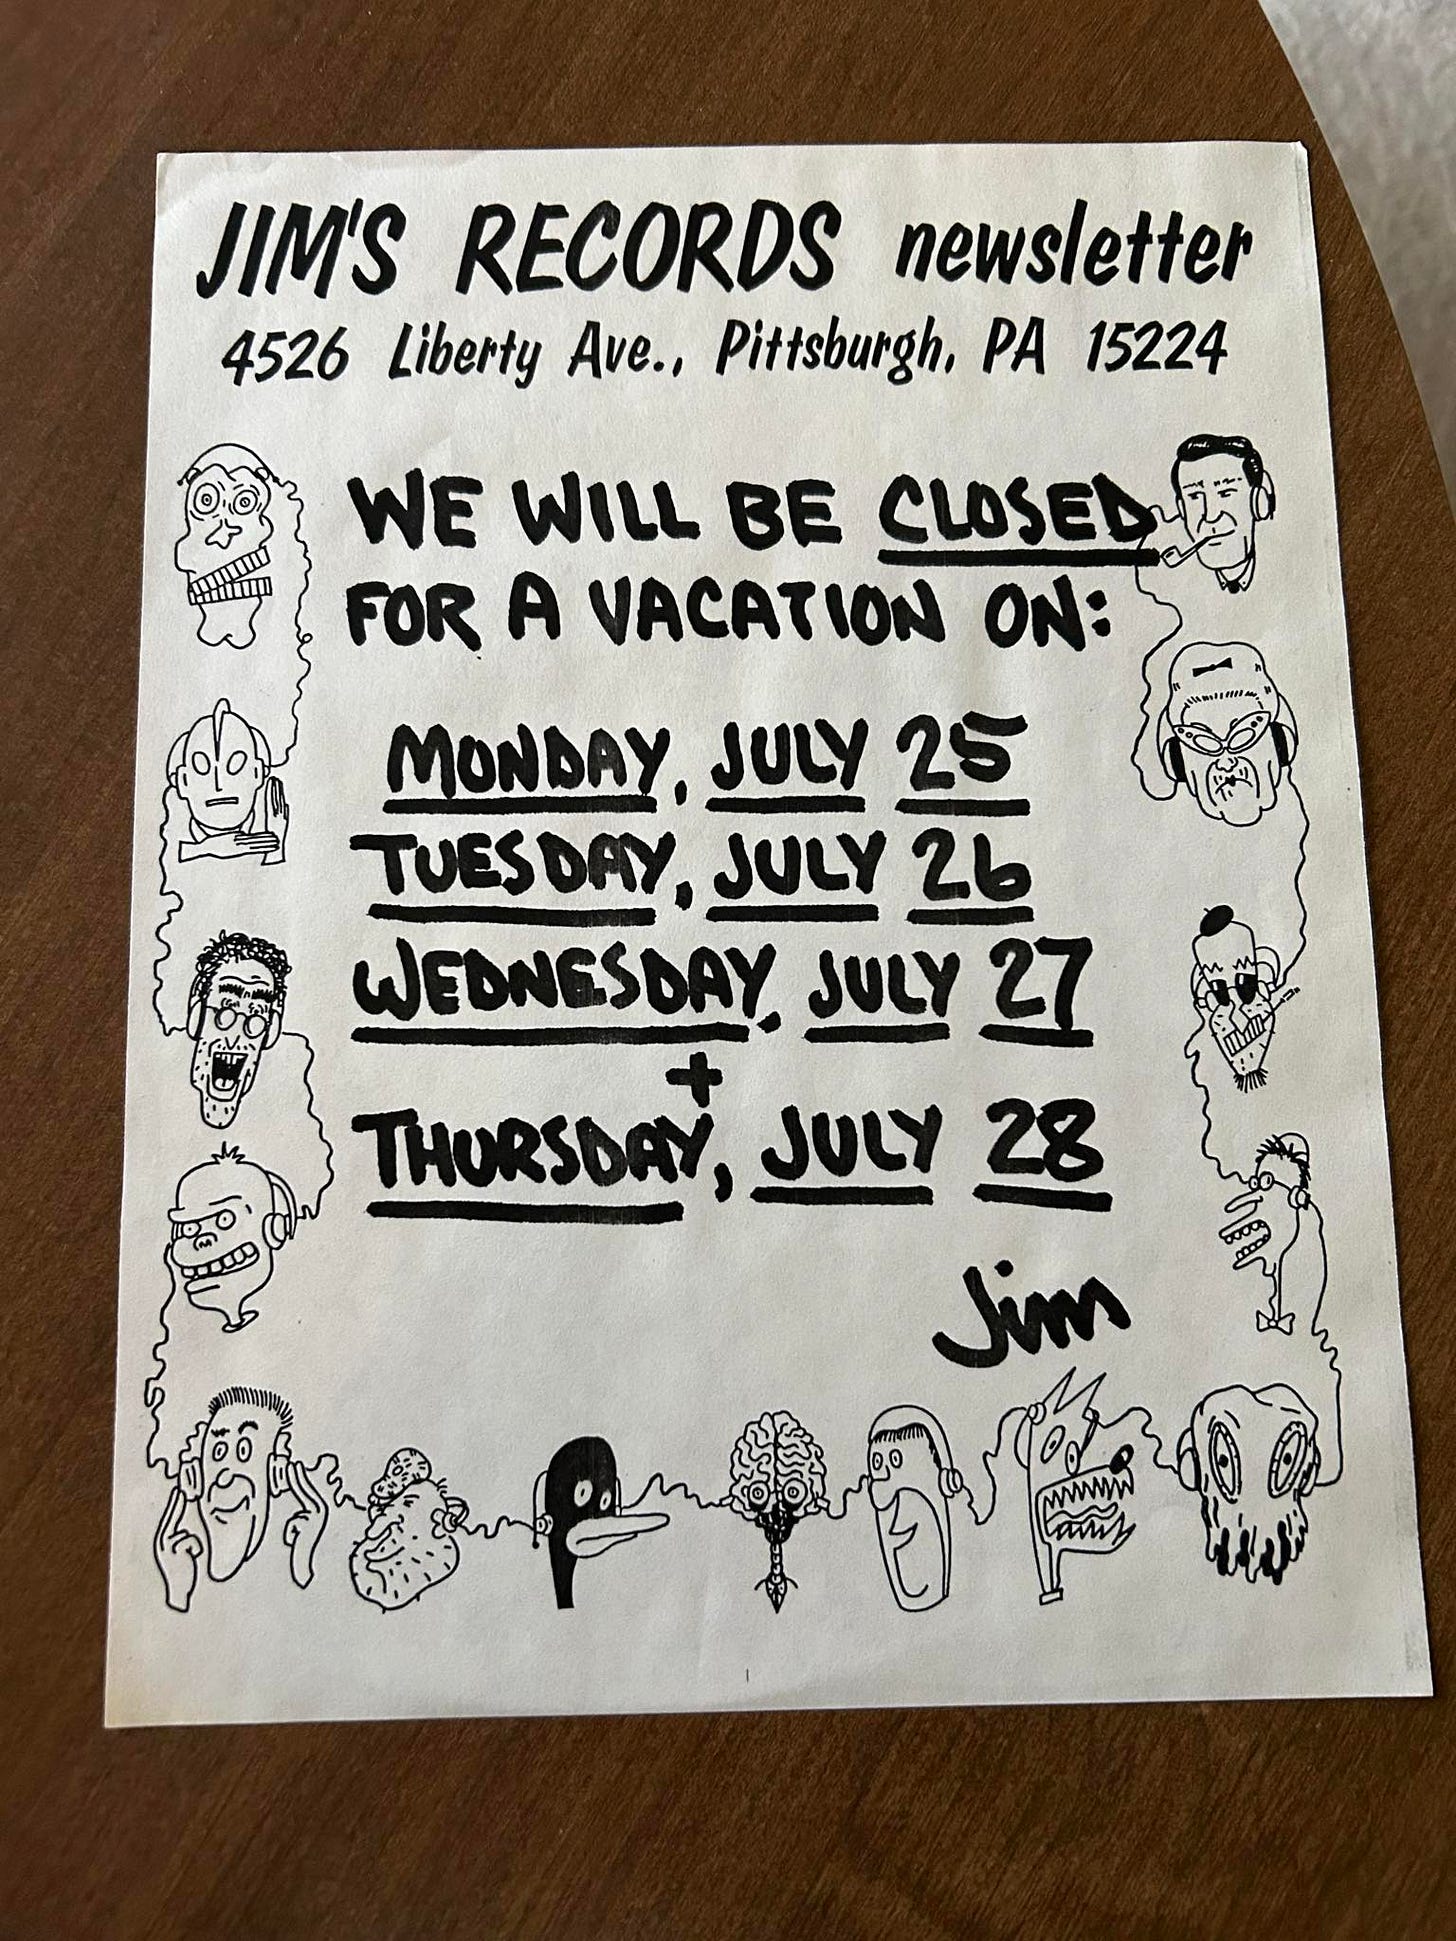 JIM'S RECORDS newsletter
4526 Liberty Ave., Pittsburgh, PA 15224
WE WILL BE CLOSED
FOR A VACATION ON:
MONDAY, JULY 25
TUESDAY, JULY 26
WEDNESDAY, JULY 27
+
THURSDAY, JULY 28
Jim